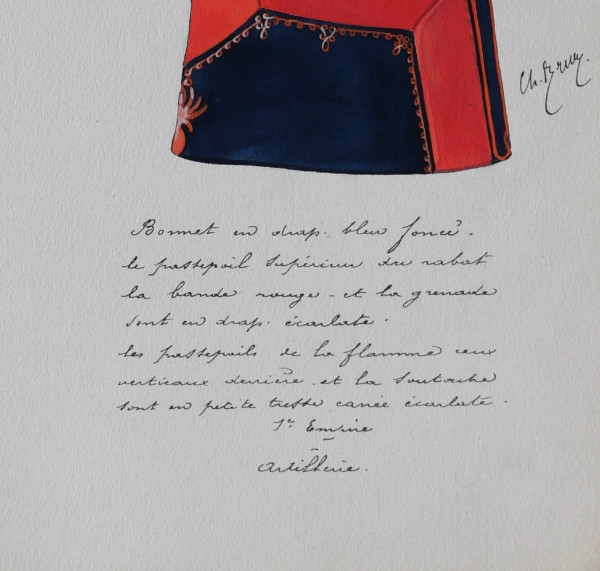 Ch. Brun.
Bonnet en drap. bleu foncé.
le passepoil supérieur du rabat
la bande rouge - et la grenade
sont en drap. écarlate.
les passepoils de la flamme ceux
verticaux derrière. et la soutache
sont en petite tresse carrée écarlate.
1er Empire
Artillerie.